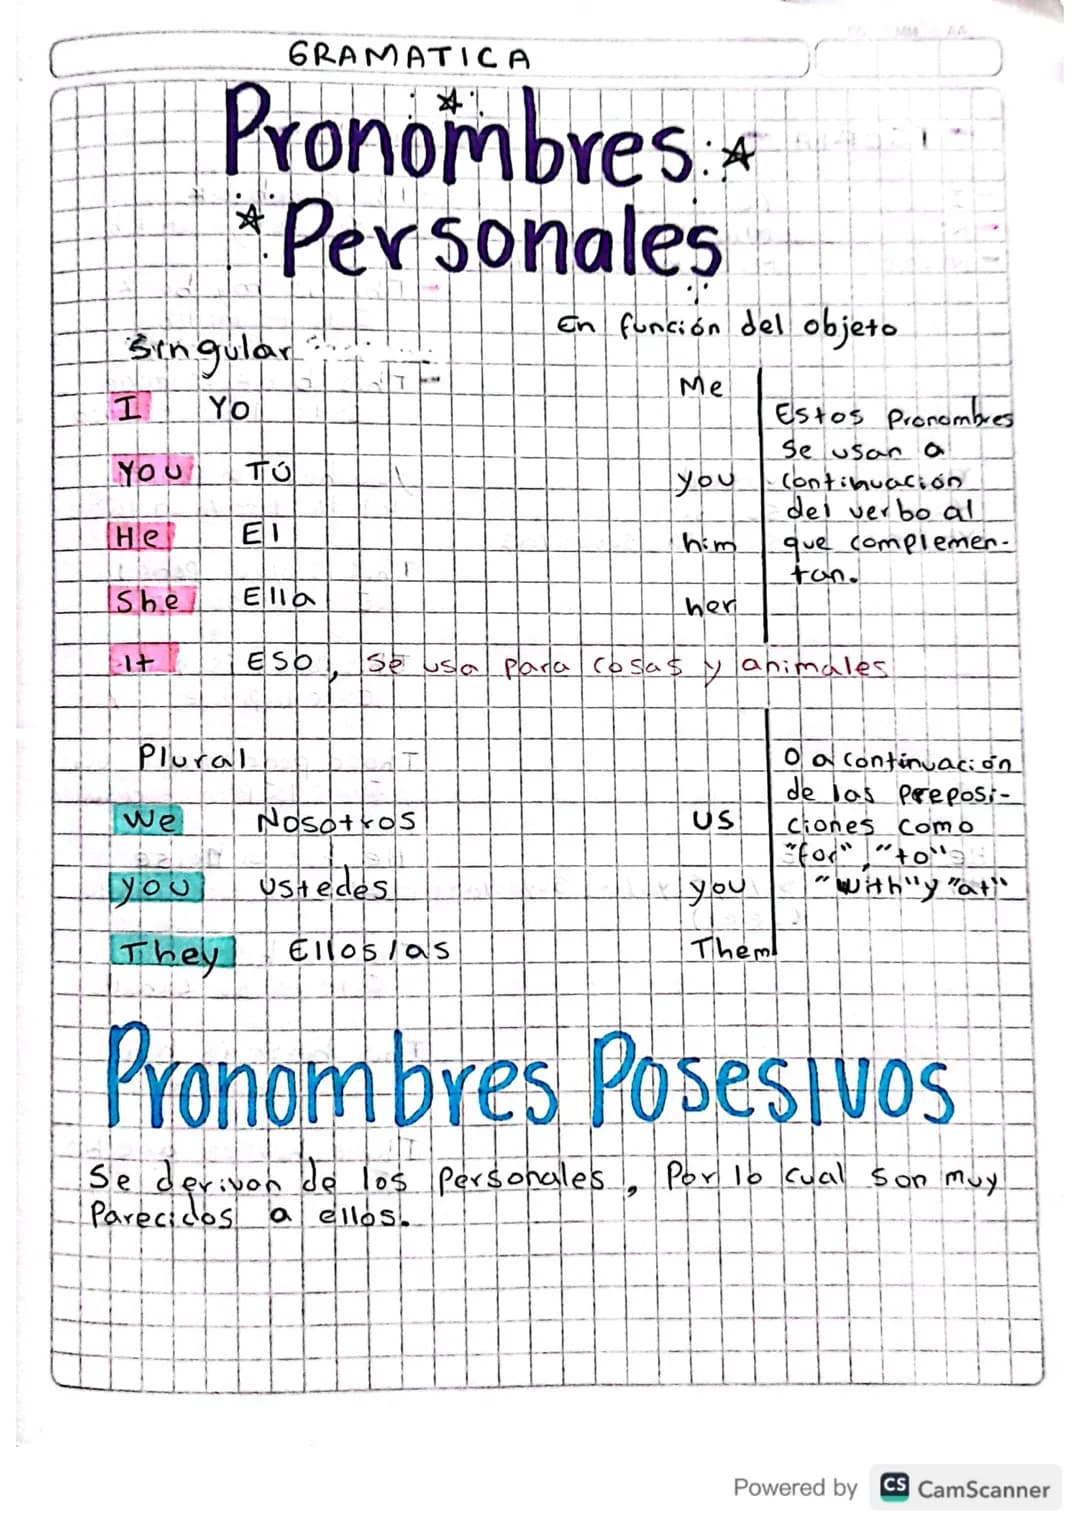 GRAMATICA
Pronombres
Personales
En función del objeto
Singular
I Yo Me
You TÚ you
He El him
She Ella her
It ESO, se usa para cosas y animales
Estos Pronombres
se usan a
continuación
del verbo al
que complemen-
tan.
Plural
We Nosotros us
you ustedes you
They Ellos/as Them
O a continuación
de las preposi-
ciones como
"for", "to"
"with" y "at"
Pronombres Posesivos
Se derivan de los personales, Por lo cual son muy
Parecidos a ellos.
Powered by CS CamScanner